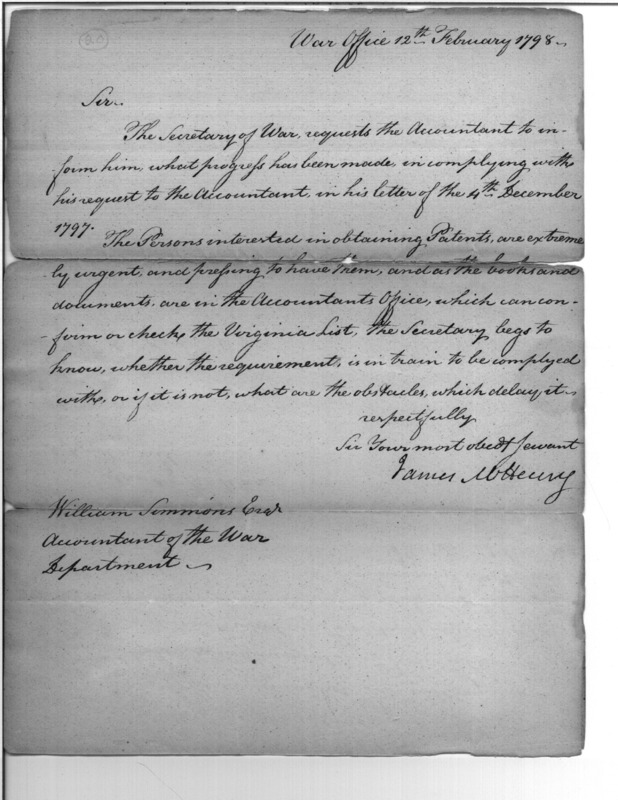 20
War Office 12th February 1798
Sir.
The Secretary of War, requests the Accountant to in-
-form him, what progress has been made, in complying with
his request to the Accountant, in his letter of the 4th December
1797.
The Persons interested in obtaining Patents, are extreme
ly urgent, and pressing to have them, and as the books and
documents, are in the Accountants Office, which can con-
-firm or check, the Virginia List, the Secretary begs to
know, whether the requirement, is in train to be complyed
with, or if it is not, what are the obstacles, which delay, it
respectfully
Sir Your most obedt servant
James McHenry
William Simmons Esqr
Accountant of the War
Department